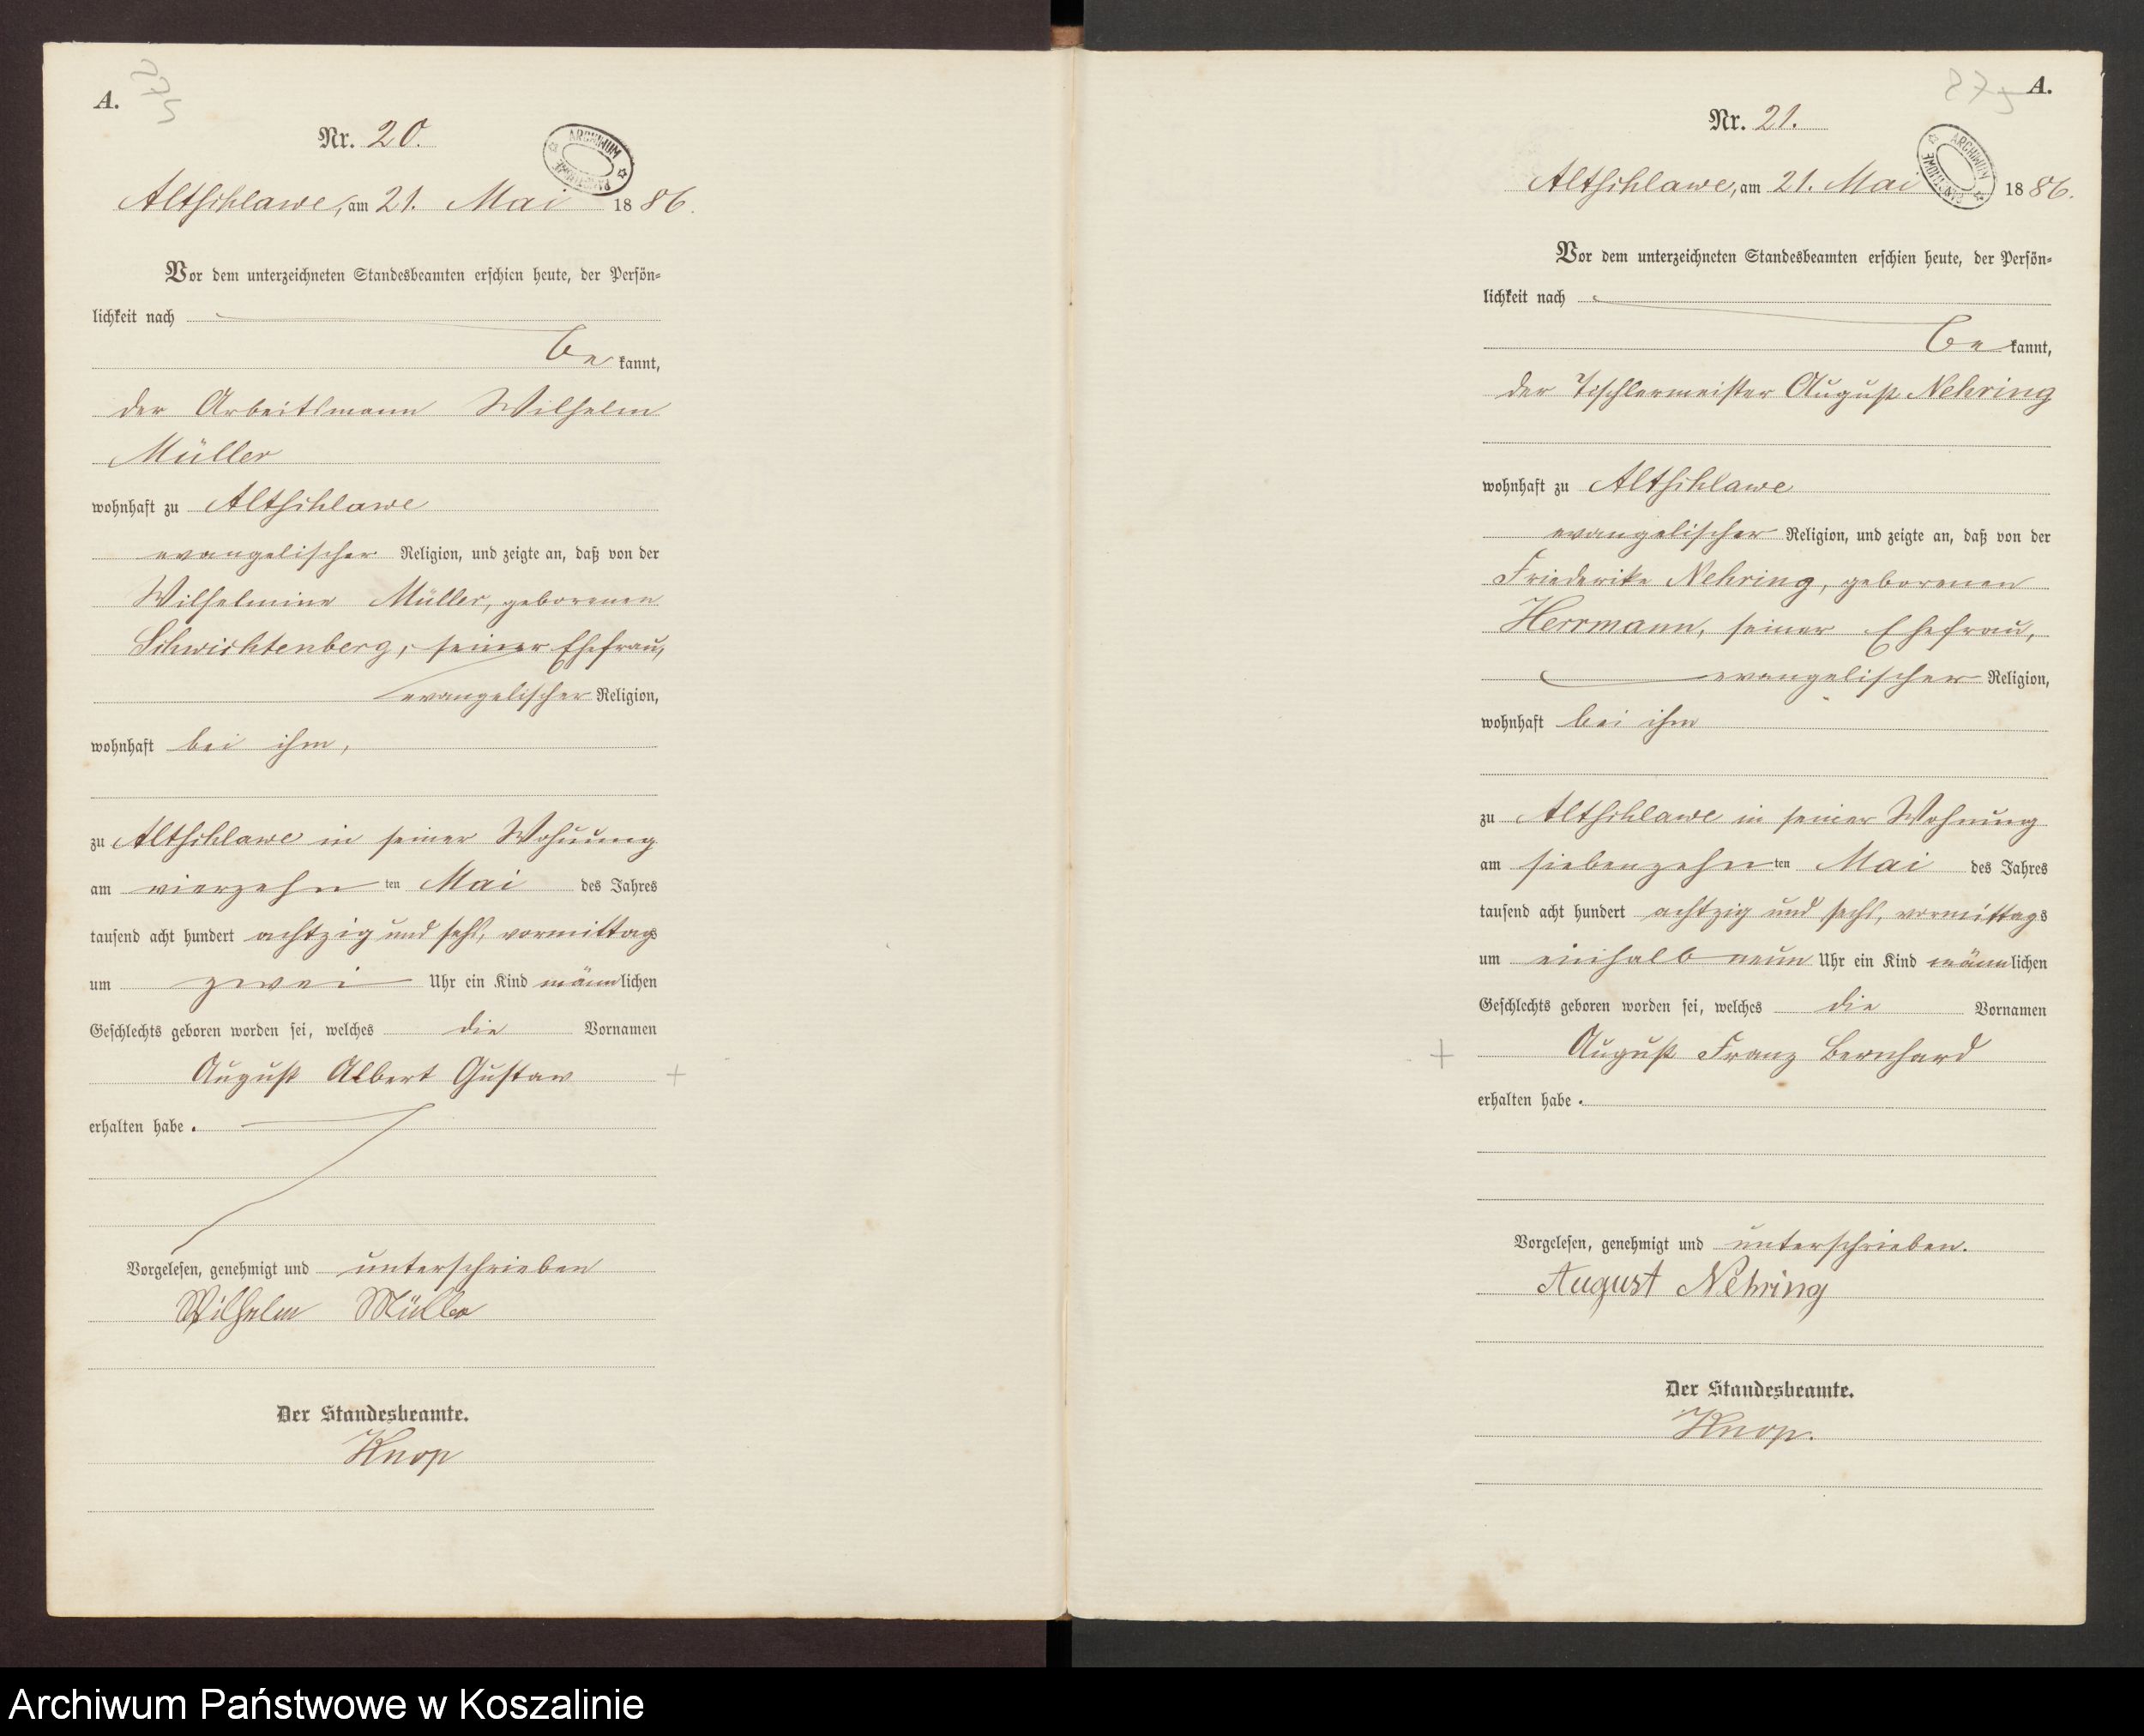 A.
Nr. 20.
ARCHIWUM PAŃSTWOWE
Altschlawe, am 21. Mai 1886.
Vor dem unterzeichneten Standesbeamten erschien heute, der Persön-
lichkeit nach
bekannt,
der Arbeitsmann Wilhelm
Müller
wohnhaft zu Altschlawe
evangelischer Religion, und zeigte an, daß von der
Wilhelmine Müller, geborenen
Schwichtenberg, seiner Ehefrau,
evangelischer Religion,
wohnhaft bei ihm,
zu Altschlawe in seiner Wohnung
am vierzehnten Mai des Jahres
tausend acht hundert achtzig und sechs, vormittags
um zwei Uhr ein Kind männlichen
Geschlechts geboren worden sei, welches die Vornamen
August Albert Gustav
erhalten habe.
Vorgelesen, genehmigt und unterschrieben
Wilhelm Müller
Der Standesbeamte.
Knop
A.
875
Nr. 21.
ARCHIWUM PAŃSTWOWE
Altschlawe, am 21. Mai 1886.
Vor dem unterzeichneten Standesbeamten erschien heute, der Persön-
lichkeit nach
bekannt,
der Tischlermeister August Nehring
wohnhaft zu Altschlawe
evangelischer Religion, und zeigte an, daß von der
Friederike Nehring, geborenen
Herrmann, seiner Ehefrau,
evangelischer Religion,
wohnhaft bei ihm
zu Altschlawe in seiner Wohnung
am siebenzehnten Mai des Jahres
tausend acht hundert achtzig und sechs, vormittags
um einhalb neun Uhr ein Kind männlichen
Geschlechts geboren worden sei, welches die Vornamen
August Franz Bernhard
erhalten habe.
Vorgelesen, genehmigt und unterschrieben.
August Nehring
Der Standesbeamte.
Knop.
Archiwum Państwowe w Koszalinie